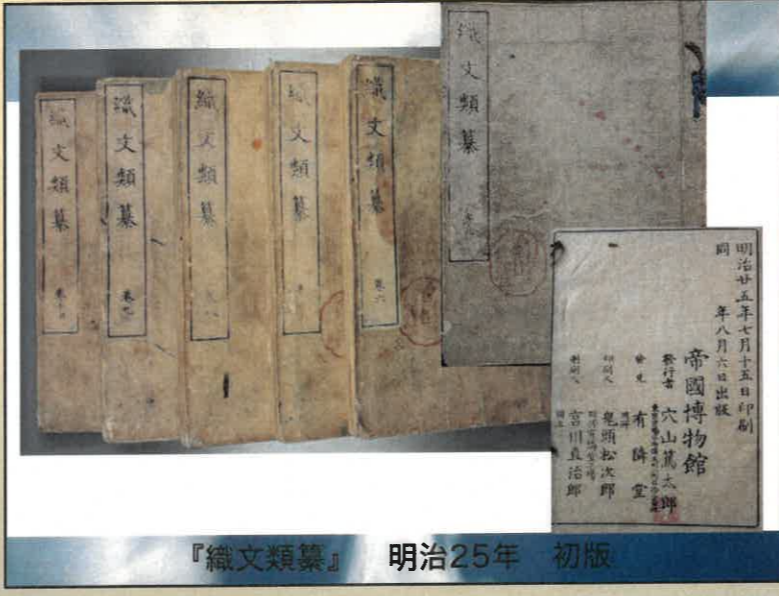 織文類纂
織文類纂
卷九
織文類纂
織文類纂
織文類纂
卷六
織文類纂
明治廿五年七月十五日印刷
同 年八月六日出版
帝國博物館
發行者 穴山篤太郎
發兌 有隣堂
印刷人 鬼頭松次郎
彫刻人 宮川直治郎
『織文類纂』 明治25年 初版